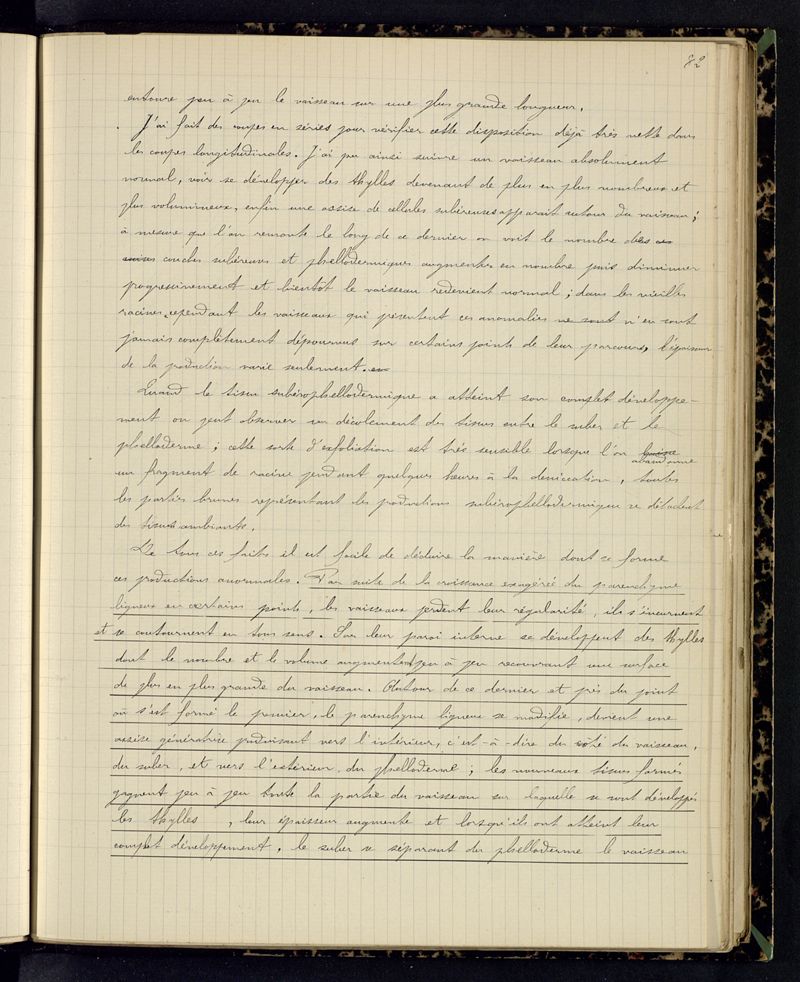 82
entoure peu à peu le vaisseau sur une plus grande longueur.
J'ai fait des coupes en séries pour vérifier cette disposition déjà très nette dans
les coupes longitudinales. J'ai pu ainsi suivre un vaisseau absolument
normal, voir se développer des thylles devenant de plus en plus nombreux et
plus volumineux, enfin une assise de cellules subéreuses apparait autour du vaisseau ;
à mesure que l'on remonte le long de ce dernier on voit le nombre des
couches subéreuses et phellodermiques augmenter en nombre puis diminuer
progressivement et bientôt le vaisseau redevient normal ; dans les vieilles
racines cependant les vaisseaux qui présentent ces anomalies ne sont n'en sont
jamais complètement dépourvus sur certains points de leur parcours, l'épaisseur
de la production varie seulement.
Quand le tissu subérophellodermique a atteint son complet développe-
ment on peut observer un décolement des tissus entre le suber et le
phelloderme ; cette sorte d'exfoliation est très sensible lorsque l'on
abandonne
un fragment de racine pendant quelques heures à la dessiccation, toutes
les parties brunes représentant les productions subérophellodermiques se détachent
des tissus ambiants.
De tous ces faits il est facile de déduire la manière dont se forme
ces productions anormales. Par suite de la croissance exagérée du parenchyme
ligneux en certains points, les vaisseaux perdent leur régularité, ils s'incurvent
et se contournent en tous sens. Sur leur paroi interne se développent des thylles
dont le nombre et le volume augmentent peu à peu recouvrant une surface
de plus en plus grande du vaisseau. Autour de ce dernier et près du point
où s'est formé le premier, le parenchyme ligneux se modifie, devient une
assise génératrice produisant vers l'intérieur, c'est-à-dire du côté du vaisseau,
du suber, et vers l'extérieur, du phelloderme ; les nouveaux tissus formés
gagnent peu à peu toute la partie du vaisseau sur laquelle se sont développés
les thylles, leur épaisseur augmente et lorsqu'ils ont atteint leur
complet développement, le suber se séparant du phelloderme le vaisseau